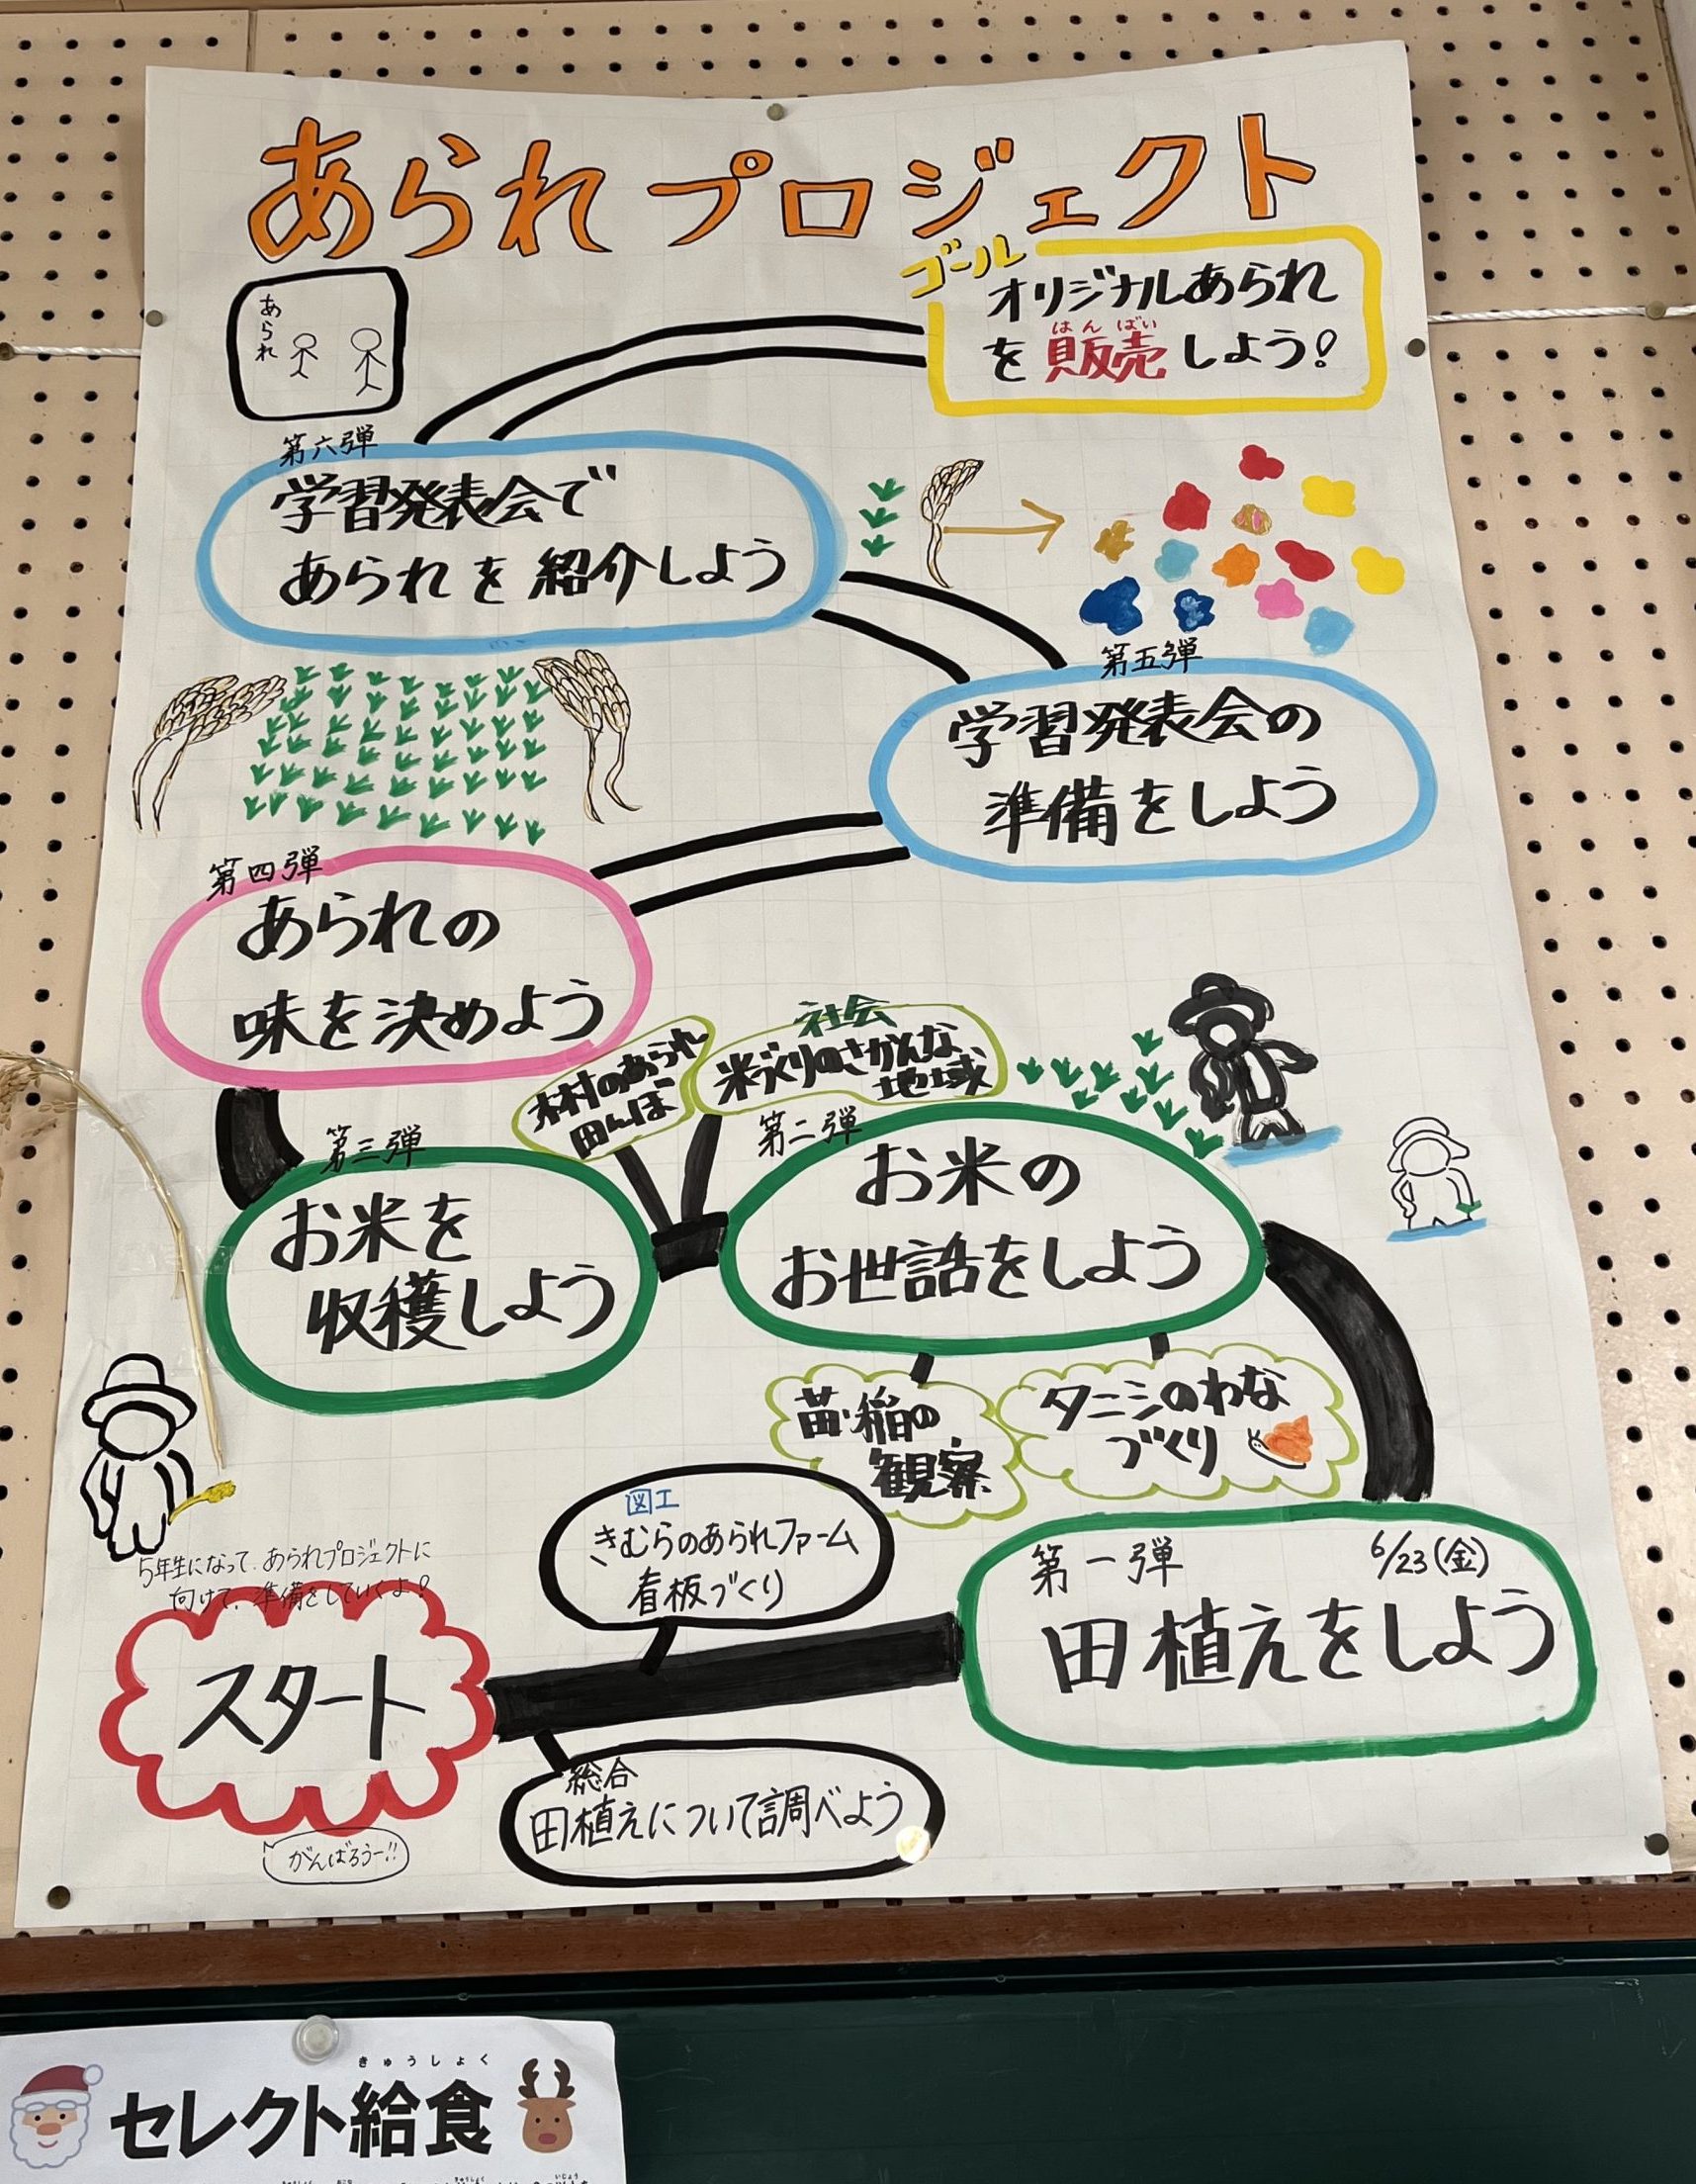 あられプロジェクト
ゴール
オリジナルあられ
はんばい
を販売しよう!
あられ
第六弾
学習発表会で
あられを紹介しよう
第五弾
学習発表会の
準備をしよう
第四弾
あられの
味を決めよう
木村のあられ
田んぼ
社会
米づくりのさかんな
地域
第三弾
お米を
収穫しよう
第二弾
お米の
お世話をしよう
苗・稲の
観察
タニシのわな
づくり
図工
きむらのあられファーム
看板づくり
第一弾 6/23(金)
田植えをしよう
5年生になって、あられプロジェクトに
向けて、準備をしていくよ!
スタート
がんばろうー!!
総合
田植えについて調べよう
きゅうしょく
セレクト給食